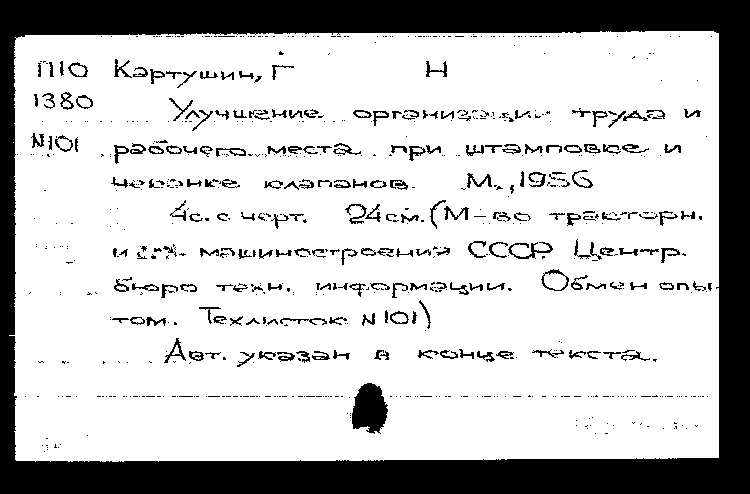 П10 Картушин, Г Н
1380 Улучшение организации труда и
N101 рабочего места при штамповке и
чеканке клапанов. М., 1956
4с. с черт. 24см. (М-во тракторн.
и машиностроения СССР. Центр.
бюро техн. информации. Обмен опы-
том. Техлисток N101)
Авт. указан в конце текста.